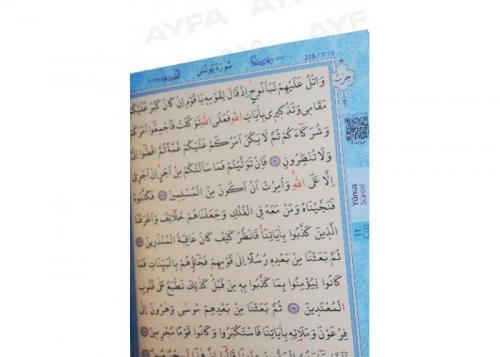 AYFA
سُورَةُ يُونُسَ
حزب
وَاتْلُ عَلَيْهِمْ نَبَاَ نُوحٍ اِذْ قَالَ لِقَوْمِهِ يَا قَوْمِ اِنْ كَانَ كَبُرَ عَلَيْكُمْ
مَقَامِي وَتَذْكِيرِي بِاٰيَاتِ اللّٰهِ فَعَلَى اللّٰهِ تَوَكَّلْتُ فَاَجْمِعُوا اَمْرَكُمْ
وَشُرَكَاءَكُمْ ثُمَّ لَا يَكُنْ اَمْرُكُمْ عَلَيْكُمْ غُمَّةً ثُمَّ اقْضُوا اِلَيَّ
وَلَا تُنْظِرُونِ ﴿٧١﴾ فَاِنْ تَوَلَّيْتُمْ فَمَا سَاَلْتُكُمْ مِنْ اَجْرٍ اِنْ اَجْرِيَ
اِلَّا عَلَى اللّٰهِ وَاُمِرْتُ اَنْ اَكُونَ مِنَ الْمُسْلِمِينَ ﴿٧٢﴾ فَكَذَّبُوهُ
فَنَجَّيْنَاهُ وَمَنْ مَعَهُ فِي الْفُلْكِ وَجَعَلْنَاهُمْ خَلَائِفَ وَاَغْرَقْنَا
الَّذِينَ كَذَّبُوا بِاٰيَاتِنَا فَانْظُرْ كَيْفَ كَانَ عَاقِبَةُ الْمُنْذَرِينَ ﴿٧٣﴾
ثُمَّ بَعَثْنَا مِنْ بَعْدِهِ رُسُلًا اِلٰى قَوْمِهِمْ فَجَاؤُهُمْ بِالْبَيِّنَاتِ فَمَا
كَانُوا لِيُؤْمِنُوا بِمَا كَذَّبُوا بِهِ مِنْ قَبْلُ كَذٰلِكَ نَطْبَعُ عَلٰى قُلُوبِ
الْمُعْتَدِينَ ﴿٧٤﴾ ثُمَّ بَعَثْنَا مِنْ بَعْدِهِمْ مُوسٰى وَهٰرُونَ اِلٰى
فِرْعَوْنَ وَمَلَائِهِ بِاٰيَاتِنَا فَاسْتَكْبَرُوا وَكَانُوا قَوْمًا مُجْرِمِينَ ﴿٧٥﴾
Yûnus
Sûresi
11.